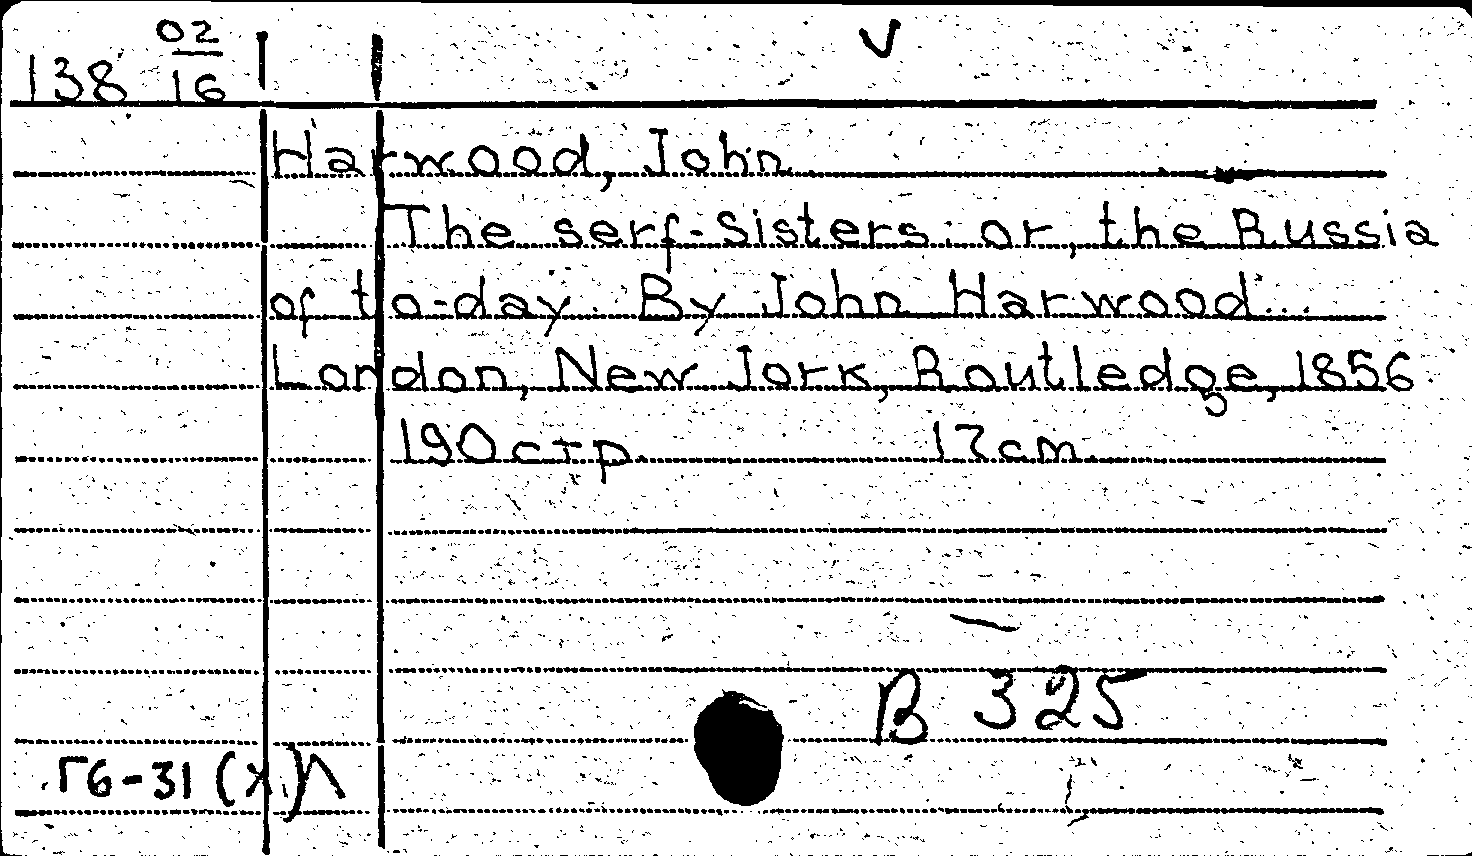 138 02/16 V
Harwood, John.
The serf-sisters: or, the Russia
of to-day. By John Harwood...
London, New Jork, Routledge, 1856.
190 стр. 17cm.
В 325
Г6-31 (х.)